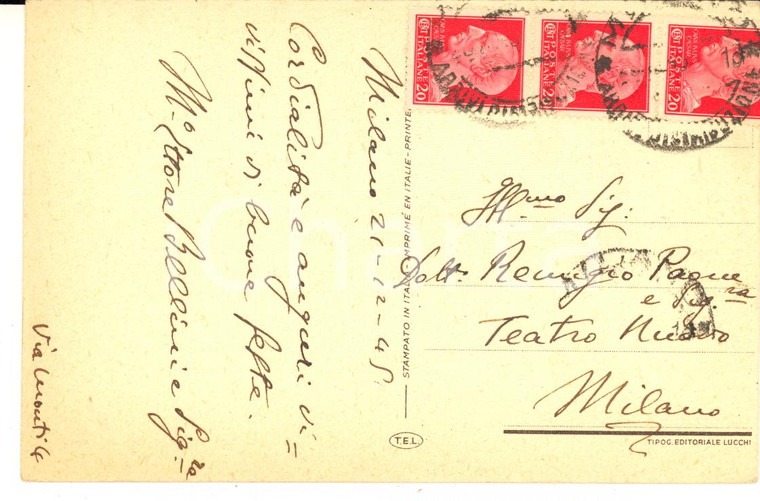 Milano 21-12-45
Cordialità e auguri vi-
vissimi di buone feste.
Mº Ettore Bellini e Sig.ra
Via Monti 4
POSTE
ITALIANE 20
POSTE
ITALIANE 20
POSTE
ITALIANE 20
STAMPATO IN ITALIA-IMPRIMÉ EN ITALIE-PRINTE
Ill.mo Sig.
Dott. Remigio Paone
e Sig.ra
Teatro Nuovo
Milano
T.E.L.
TIPOG. EDITORIALE LUCCHI